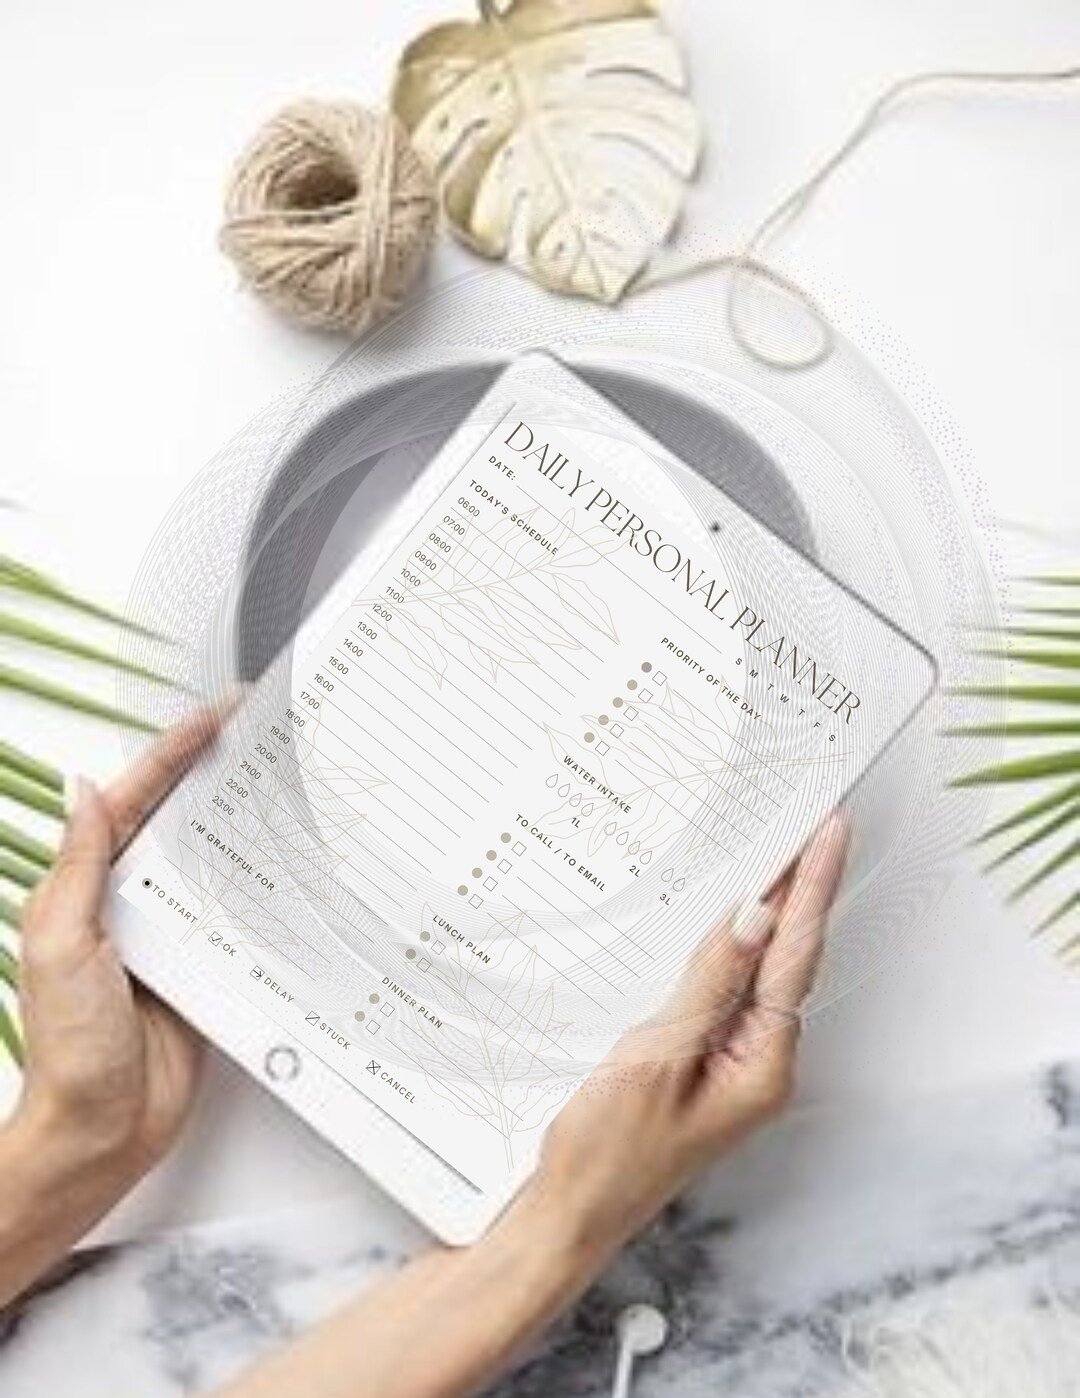 DAILY PERSONAL PLANNER
DATE:
S M T W T F S
TODAY'S SCHEDULE
06:00
07:00
08:00
09:00
10:00
11:00
12:00
13:00
14:00
15:00
16:00
17:00
18:00
19:00
20:00
21:00
22:00
23:00
PRIORITY OF THE DAY
WATER INTAKE
1L
2L
3L
TO CALL / TO EMAIL
LUNCH PLAN
DINNER PLAN
I'M GRATEFUL FOR
TO START
OK
DELAY
STUCK
CANCEL